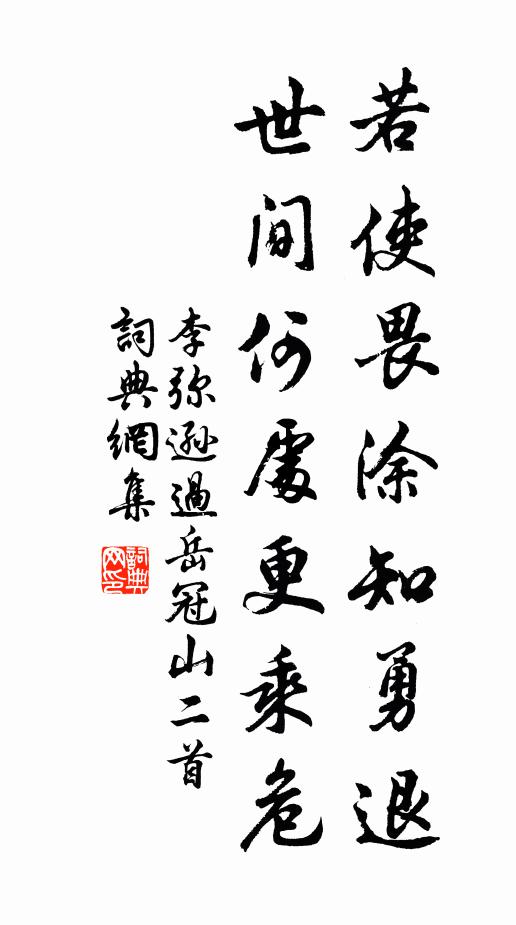 若使畏涂知勇退
世間何處更乘危
李弥逊過岳冠山二首
詞典網集
詞典网印